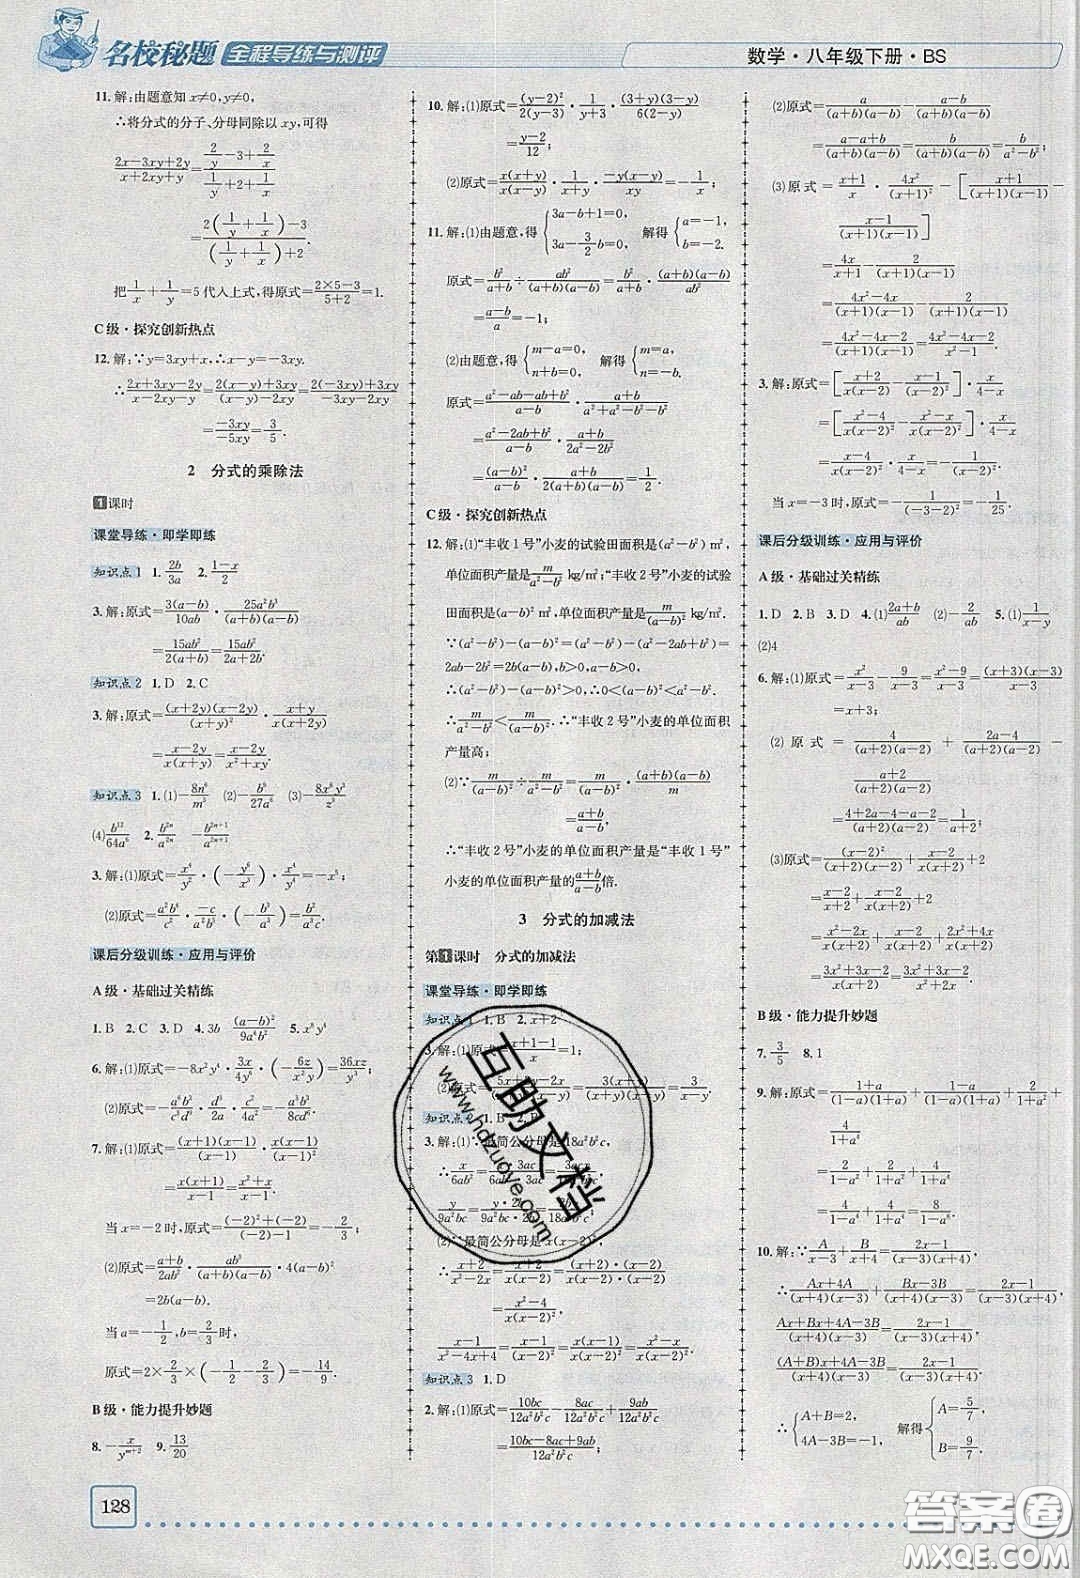 名校秘题 全程导练与测评
数学·八年级下册·BS
11. 解:由题意知 x≠0,y≠0,
∴将分式的分子、分母同除以 xy,可得
(2x-3xy+2y)/(x+2xy+y)=(2/y-3+2/x)/(1/y+2+1/x)
=(2(1/y+1/x)-3)/((1/y+1/x)+2).
把1/x+1/y=5代入上式,得原式=(2×5-3)/(5+2)=1.
C级·探究创新热点
12. 解:∵y=3xy+x,∴x-y=-3xy.
∴(2x+3xy-2y)/(x-2xy-y)=(2(x-y)+3xy)/((x-y)-2xy)=(2(-3xy)+3xy)/(-3xy-2xy)
=(-3xy)/(-5xy)=3/5.
2 分式的乘除法
1课时
课堂导练·即学即练
知识点1 1. 2b/3a 2. (1-x)/2
3. 解:原式=3(a-b)/10ab·25a²b³/((a+b)(a-b))
=15ab²/(2(a+b))=15ab²/(2a+2b).
知识点2 1. D 2. C
3. 解:原式=(x+2y)(x-2y)/(x+y)²·(x+y)/(x(x+2y))
=(x-2y)/(x(x+y))=(x-2y)/(x²+xy).
知识点3 1. (1)-8n⁶/m³ (2)-b⁹/27a⁶ (3)-8x⁶y³/z³
(4)b¹²/64a⁶ 2. b²ⁿ/a²ⁿ -b²ⁿ⁺¹/a²ⁿ⁺¹
3. 解:(1)原式=x⁴/y²·(-y⁶/x³)·x⁴/y⁴=-x⁵;
课后分级训练·应用与评价
A级·基础过关精练
1. B 2. C 3. D 4. 3b (a-b)²/9a⁴b² 5. x⁵y⁴
7. 解:(1)原式=(x+1)(x-1)/(x-1)²·x(x-1)/(x-1)
=x(x+1)/(x-1)=(x²+x)/(x-1).
当x=-2时,原式=((-2)²+(-2))/(-2-1)=-2/3;
(2)原式=(a+b)/2ab²·2ab³/((a+b)(a-b))·4(a-b)²
=2b(a-b).
当a=-1/2,b=2/3时,
原式=2×2/3×(-1/2-2/3)=-14/9
B级·能力提升妙题
8. -x/yᵐ⁺² 9. 13/20
128
10. 解:(1)原式=(y-2)²/(2(y-3))·1/(y+3)·(3+y)(3-y)/(6(2-y))
=(y-2)/12;
(2)原式=x(x+y)/(x(x-y))·1/(x+y)·(-y(x-y))/xy=-1/x;
11. 解:(1)由题意,得{3a-b+1=0, 3a-3/2b=0, 解得{a=-1, b=-2.
原式=b²/(a+b)÷ab/((a+b)(a-b))=b²/(a+b)·(a+b)(a-b)/ab²
=(a-b)/a=-1;
(2)由题意,得{m-a=0, n+b=0. 解得{m=a, n=-b.
原式=(a²-ab-ab+b²)/(a-b)·(a+b)/(a²+a²-b²-b²)
=(a²-2ab+b²)/(a-b)·(a+b)/(2a²-2b²)
=(a-b)²/(a-b)·(a+b)/(2(a+b)(a-b))=1/2.
C级·探究创新热点
12. 解:(1)“丰收1号”小麦的试验田面积是(a²-b²) m²,
单位面积产量是m/(a²-b²) kg/m²;“丰收2号”小麦的试验
田面积是(a-b)² m²,单位面积产量是m/(a-b)² kg/m².
∵(a²-b²)-(a-b)²=a²-b²-(a²-2ab+b²)=
2ab-2b²=2b(a-b),b>0,a-b>0,
∴(a²-b²)-(a-b)²>0,∴0<(a-b)²<a²-b².
∴m/(a²-b²)<m/(a-b)².∴“丰收2号”小麦的单位面积
产量高;
(2)∵m/(a-b)²÷m/(a²-b²)=m/(a-b)²·(a+b)(a-b)/m
=(a+b)/(a-b),
∴“丰收2号”小麦的单位面积产量是“丰收1号”
小麦的单位面积产量的(a+b)/(a-b)倍.
3 分式的加减法
第1课时 分式的加减法
课堂导练·即学即练
知识点1 1. B 2. x+2
3. 解:(1)原式=(x+1-1)/x=1;
(2)原式=(5x+3y-2x)/((x+y)(x-y))=3(x+y)/((x+y)(x-y))=3/(x-y).
3. 解:(1)∵最简公分母是18a²b²c,
(2)∵最简公分母是x(x-2)²,
∴(x+2)/(x²-2x)=(x+2)/(x(x-2))=(x+2)(x-2)/(x(x-2)²)=
(x²-4)/(x(x-2)²),
(x-1)/(x²-4x+4)=(x-1)/(x-2)²=x(x-1)/(x(x-2)²)=(x²-x)/(x(x-2)²)
知识点3 1. D
2. 解:(1)原式=10bc/12a²b²c-8ac/12a²b²c+9ab/12a²b²c
=(10bc-8ac+9ab)/12a²b²c;
(2)原式=a/((a+b)(a-b))-(a-b)/((a+b)(a-b))
=(a-a+b)/((a+b)(a-b))=b/(a²-b²);
(3)原式=(x+1)/x·4x²/((x+1)(x-1))-[(x+1)/((x+1)(x-1))-
(x-1)/((x+1)(x-1))]
=4x/(x+1)-2/((x+1)(x-1))
=(4x²-4x)/((x+1)(x-1))-2/((x+1)(x-1))
=(4x²-4x-2)/((x+1)(x-1))=(4x²-4x-2)/(x²-1).
3. 解:原式=[(x+2)/(x(x-2))-(x-1)/(x-2)²]·x/(4-x)
=[(x²-4)/(x(x-2)²)-(x²-x)/(x(x-2)²)]·x/(4-x)
=(x-4)/(x(x-2)²)·x/(4-x)=-1/(x-2)².
当x=-3时,原式=-1/(-3-2)²=-1/25.
课后分级训练·应用与评价
A级·基础过关精练
1. D 2. B 3. D 4. (1)(2a+b)/ab (2)-2/ab 5. (1)1/(x-y)
(2)4
6. 解:(1)原式=x²/(x-3)-9/(x-3)=(x²-9)/(x-3)=(x+3)(x-3)/(x-3)
=x+3;
(2)原式=4/((a+2)(a-2))+(2a-4)/((a+2)(a-2))-
(a+2)/((a+2)(a-2))
=(4+2a-4-a-2)/((a+2)(a-2))=(a-2)/((a+2)(a-2))=1/(a+2);
(3)原式=(x-2)²/((x+2)(x-2))+x/(x(x+2))+2
=(x-2)/(x+2)+x/(x(x+2))+2
=(x²-2x)/(x(x+2))+x/(x(x+2))+(2x²+4x)/(x(x+2))
=(3x²+3x)/(x(x+2))=(3x²+3x)/(x²+2x)=(3x+3)/(x+2).
B级·能力提升妙题
7. 3/5 8. 1
9. 解:原式=(1+a)/((1-a)(1+a))+(1-a)/((1-a)(1+a))+2/(1+a²)+
4/(1+a⁴)
=2/(1-a²)+2/(1+a²)+4/(1+a⁴)
=4/(1-a⁴)+4/(1+a⁴)=8/(1-a⁸).
10. 解:∵A/(x-3)+B/(x+4)=(2x-1)/((x-3)(x+4)),
∴(Ax+4A)/((x+4)(x-3))+(Bx-3B)/((x+4)(x-3))=(2x-1)/((x-3)(x+4)),
(Ax+Bx+4A-3B)/((x+4)(x-3))=(2x-1)/((x-3)(x+4)),
((A+B)x+4A-3B)/((x+4)(x-3))=(2x-1)/((x-3)(x+4)),
∴{A+B=2, 4A-3B=-1, 解得{A=5/7, B=9/7.
互助文档
www.hdzuoye.com
答案圈
MXQE.COM